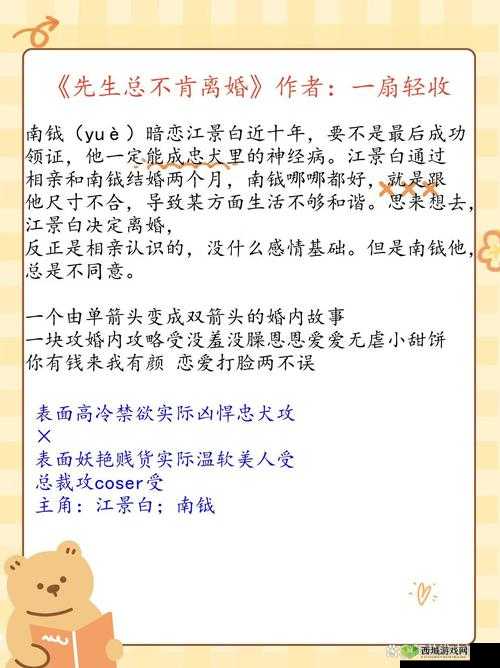 《先生总不肯离婚》作者：一扇轻收
南钺（yuè）暗恋江景白近十年，要不是最后成功
领证，他一定能成忠犬里的神经病。江景白通过
相亲和南钺结婚两个月，南钺哪哪都好，就是跟
他尺寸不合，导致某方面生活不够和谐。思来想去，
江景白决定离婚，
反正是相亲认识的，没什么感情基础。但是南钺他，
总是不同意。
一个由单箭头变成双箭头的婚内故事
一块攻婚内攻略受没羞没臊恩恩爱爱无虐小甜饼
你有钱来我有颜 恋爱打脸两不误
表面高冷禁欲实际凶悍忠犬攻
×
表面妖艳贱货实际温软美人受
总裁攻coser受
主角：江景白；南钺
西城游戏网